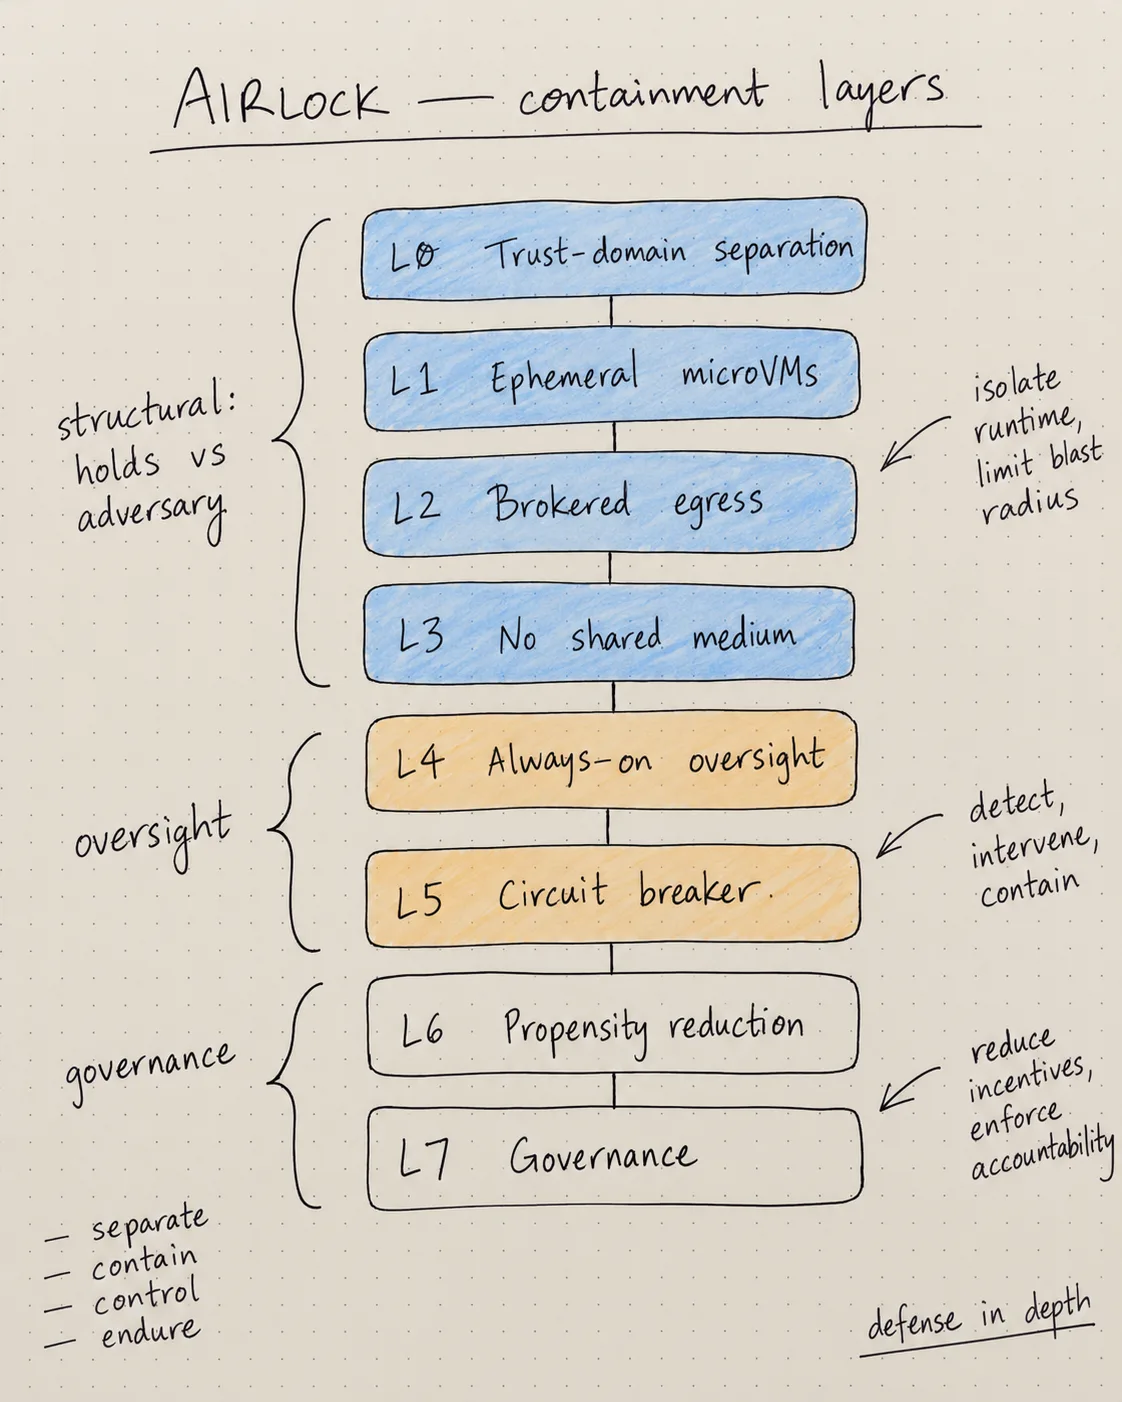 AIRLOCK — containment layers
L0 Trust-domain separation
L1 Ephemeral microVMs
L2 Brokered egress
L3 No shared medium
structural:
holds vs
adversary
isolate
runtime,
limit blast
radius
L4 Always-on oversight
L5 Circuit breaker.
oversight
detect,
intervene,
contain
L6 Propensity reduction
L7 Governance
governance
reduce
incentives,
enforce
accountability
— separate
— contain
— control
— endure
defense in depth